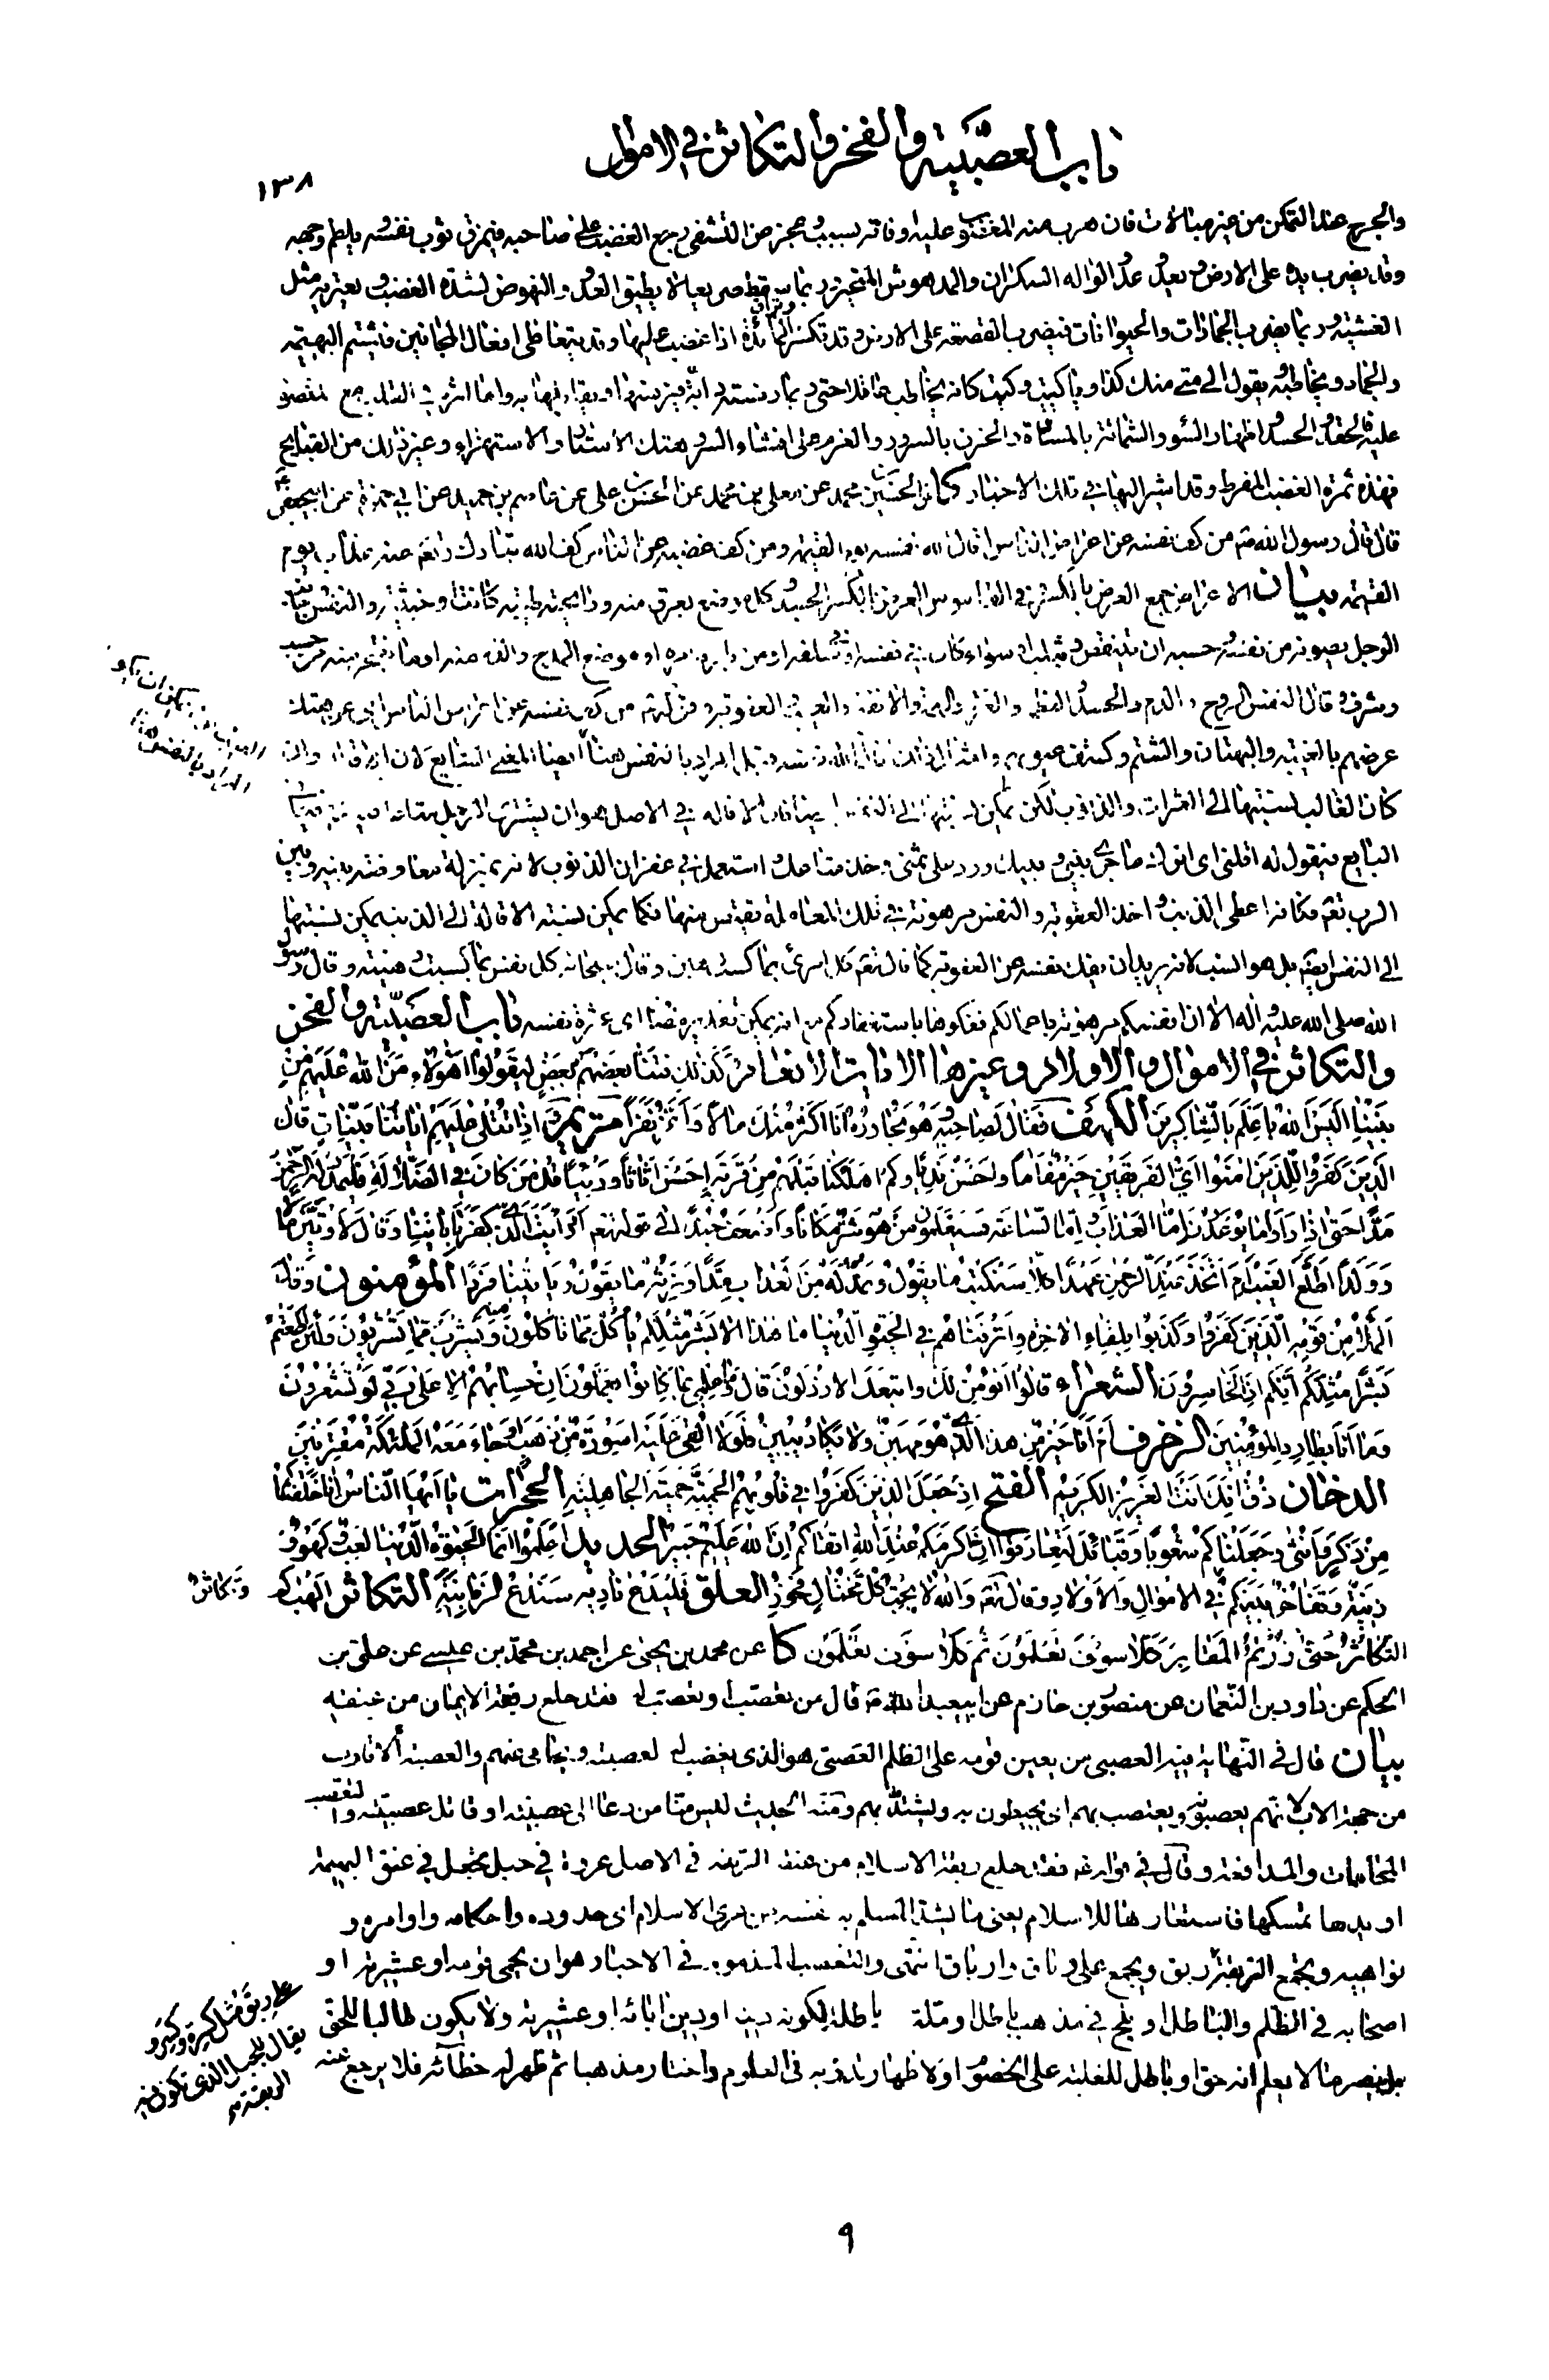 باب العصبية والفخر والتكاثر في الاموال
١٣٨
والجرح عند التمكن من غير مبالات فان هرب منه المغضوب عليه وفاته بسبب وعجز عن التشفي رجع الغضب على صاحبه فيمزق ثوب نفسه ويلطم وجهه
وقد يضرب يده على الارض ويعدو عدو الواله السكران والمدهوش المتحير وربما سقط صريعا لا يطيق العدو والنهوض لشدة الغضب ويعتريه مثل
الغشية وربما يضرب الجمادات والحيوانات فيضرب القصعة على الارض وقد تكسر المائدة اذا غضب عليها وقد يتعاطى افعال المجانين فيشتم البهيمة
والجماد ويخاطبه ويقول الى متى منك كذا ويا كيت وكيت كانه يخاطب عاقلا حتى ربما رفسته دابة فيرفسها ويقابلها به واما اثره في القلب مع المغضوب
عليه فالحقد والحسد واظهار السوء والشماتة بالمساءة والحزن بالسرور والعزم على افشاء السر وهتك الاستار والاستهزاء وغير ذلك من القبايح
فهذه ثمرة الغضب المفرط وقد اشير اليها في تلك الاخبار كا عن الحسين بن محمد عن معلى بن محمد عن الحسن بن علي عن عاصم بن حميد عن ابي حمزة عن ابيجعفر ع
قال قال رسول الله ص من كف نفسه عن اعراض الناس اقال الله نفسه يوم القيمة ومن كف غضبه عن الناس كف الله تبارك وتعالى عنه عذاب يوم
القيمة بيان الاعراض جمع العرض بالكسر وفي القاموس العرض بالكسر الجسد وكل موضع يعرق منه ورايحته رايحة طيبة كانت او خبيثة والنفس وجانب
الرجل الذي يصونه من نفسه وحسبه ان ينتقص ويثلب او سواء كان في نفسه او سلفه او من يلزمه امره او موضع المدح والذم منه او ما يفتخر به من حسب
وشرف وقال النفس الروح والدم والجسد والعظمة والعزة والهمة والانفة والعيب والعقوبة قوله من كف نفسه عن اعراض الناس اي عن هتك
عرضهم بالغيبة والبهتان والشتم وكشف عيوبهم وامثال ذلك اقال الله نفسه قيل المراد بالنفس هنا ايضا المعنى الشايع لان الاقالة وان
كان الغالب نسبتها الى العثرات والذنوب لكن يمكن نسبتها الى النفس ايضا فان الاقالة في الاصل هو ان يشتري الرجل متاعا فيندم فيأتي
البايع فيقول له اقلني اي اترك ما جرى بيني وبينك ورد علي ثمني وخذ متاعك واستعمل في غفران الذنوب لانه بمنزلة معاوضة بينه وبين
الرب تعالى فكانه اعطى الذنب واخذ العقوبة والنفس مرهونة في تلك المعاملة يقتص منها فكما يمكن نسبة الاقالة الى الذنب يمكن نسبتها
الى النفس ايضا بل هو انسب لانه يريد ان يفك نفسه عن العقوبة كما قال تعالى كل امرئ بما كسب رهين وقال سبحانه كل نفس بما كسبت رهينة وقال رسول
الله صلى الله عليه واله الا ان انفسكم مرهونة باعمالكم ففكوها باستغفاركم مع انه يمكن تقدير مضاف اي عثرة نفسه باب العصبية والفخر
والتكاثر في الاموال والاولاد وغيرها الايات الانعام وَكَذٰلِكَ فَتَنَّا بَعْضَهُمْ بِبَعْضٍ لِيَقُولُوا اَهٰؤُلَاءِ مَنَّ اللهُ عَلَيْهِمْ مِنْ
بَيْنِنَا اَلَيْسَ اللهُ بِاَعْلَمَ بِالشّٰاكِرِينَ الكهف فَقَالَ لِصَاحِبِهِ وَهُوَ يُحَاوِرُهُ اَنَا اَكْثَرُ مِنْكَ مَالًا وَاَعَزُّ نَفَرًا مريم وَاِذَا تُتْلٰى عَلَيْهِمْ اٰيَاتُنَا بَيِّنَاتٍ قَالَ
الَّذِينَ كَفَرُوا لِلَّذِينَ اٰمَنُوا اَيُّ الْفَرِيقَيْنِ خَيْرٌ مَقَامًا وَاَحْسَنُ نَدِيًّا وَكَمْ اَهْلَكْنَا قَبْلَهُمْ مِنْ قَرْنٍ هُمْ اَحْسَنُ اَثَاثًا وَرِئْيًا قُلْ مَنْ كَانَ فِي الضَّلَالَةِ فَلْيَمْدُدْ لَهُ الرَّحْمٰنُ
مَدًّا حَتّٰى اِذَا رَاَوْا مَا يُوعَدُونَ اِمَّا الْعَذَابَ وَاِمَّا السَّاعَةَ فَسَيَعْلَمُونَ مَنْ هُوَ شَرٌّ مَكَانًا وَاَضْعَفُ جُنْدًا الى قوله تعالى اَفَرَاَيْتَ الَّذِي كَفَرَ بِاٰيَاتِنَا وَقَالَ لَاُوتَيَنَّ مَالًا
وَوَلَدًا اَطَّلَعَ الْغَيْبَ اَمِ اتَّخَذَ عِنْدَ الرَّحْمٰنِ عَهْدًا كَلَّا سَنَكْتُبُ مَا يَقُولُ وَنَمُدُّ لَهُ مِنَ الْعَذَابِ مَدًّا وَنَرِثُهُ مَا يَقُولُ وَيَاْتِينَا فَرْدًا المؤمنون وَقَالَ
الْمَلَاُ مِنْ قَوْمِهِ الَّذِينَ كَفَرُوا وَكَذَّبُوا بِلِقَاءِ الْاٰخِرَةِ وَاَتْرَفْنَاهُمْ فِي الْحَيٰوةِ الدُّنْيَا مَا هٰذَا اِلَّا بَشَرٌ مِثْلُكُمْ يَاْكُلُ مِمَّا تَاْكُلُونَ مِنْهُ وَيَشْرَبُ مِمَّا تَشْرَبُونَ وَلَئِنْ اَطَعْتُمْ
بَشَرًا مِثْلَكُمْ اِنَّكُمْ اِذًا لَخَاسِرُونَ الشعراء قَالُوا اَنُؤْمِنُ لَكَ وَاتَّبَعَكَ الْاَرْذَلُونَ قَالَ وَمَا عِلْمِي بِمَا كَانُوا يَعْمَلُونَ اِنْ حِسَابُهُمْ اِلَّا عَلٰى رَبِّي لَوْ تَشْعُرُونَ
وَمَا اَنَا بِطَارِدِ الْمُؤْمِنِينَ الزخرف اَمْ اَنَا خَيْرٌ مِنْ هٰذَا الَّذِي هُوَ مَهِينٌ وَلَا يَكَادُ يُبِينُ فَلَوْلَا اُلْقِيَ عَلَيْهِ اَسْوِرَةٌ مِنْ ذَهَبٍ اَوْ جَاءَ مَعَهُ الْمَلٰئِكَةُ مُقْتَرِنِينَ
الدخان ذُقْ اِنَّكَ اَنْتَ الْعَزِيزُ الْكَرِيمُ الفتح اِذْ جَعَلَ الَّذِينَ كَفَرُوا فِي قُلُوبِهِمُ الْحَمِيَّةَ حَمِيَّةَ الْجَاهِلِيَّةِ الحجرات يَا اَيُّهَا النَّاسُ اِنَّا خَلَقْنَاكُمْ
مِنْ ذَكَرٍ وَاُنْثٰى وَجَعَلْنَاكُمْ شُعُوبًا وَقَبَائِلَ لِتَعَارَفُوا اِنَّ اَكْرَمَكُمْ عِنْدَ اللهِ اَتْقَاكُمْ اِنَّ اللهَ عَلِيمٌ خَبِيرٌ الحديد اِعْلَمُوا اَنَّمَا الْحَيٰوةُ الدُّنْيَا لَعِبٌ وَلَهْوٌ وَ
زِينَةٌ وَتَفَاخُرٌ بَيْنَكُمْ وَتَكَاثُرٌ فِي الْاَمْوَالِ وَالْاَوْلَادِ وقال تعالى وَاللهُ لَا يُحِبُّ كُلَّ مُخْتَالٍ فَخُورٍ العلق فَلْيَدْعُ نَادِيَهُ سَنَدْعُ الزَّبَانِيَةَ التكاثر اَلْهٰيكُمُ
التَّكَاثُرُ حَتّٰى زُرْتُمُ الْمَقَابِرَ كَلَّا سَوْفَ تَعْلَمُونَ ثُمَّ كَلَّا سَوْفَ تَعْلَمُونَ كا عن محمد بن يحيى عن احمد بن محمد بن عيسى عن علي بن
الحكم عن داود بن النعمان عن منصور بن حازم عن ابيعبد الله ع قال من تعصب او تعصب له فقد خلع ربقة الايمان من عنقه
بيان قال في النهاية فيه العصبي من يعين قومه على الظلم العصبي هو الذي يغضب لعصبته ويحامي عنهم والعصبة الاقارب
من جهة الاب لانهم يعصبونه ويعتصب بهم اي يحيطون به ويشتد بهم ومنه الحديث ليس منا من دعا الى عصبية او قاتل عصبية والتعصب
المحامات والمدافعة وقال في قوله فقد خلع ربقة الاسلام من عنقه الربقة في الاصل عروة في حبل يجعل في عنق البهيمة
او يدها تمسكها فاستعارها للاسلام يعني ما يشد المسلم به نفسه من عرى الاسلام اي حدوده واحكامه واوامره و
نواهيه ويجمع الربقة على ربق ويجمع على رباق وارباق انتهى والتعصب المذموم في الاخبار هو ان يحمي قومه او عشيرته او
اصحابه في الظلم والباطل او يلج في مذهب باطل او ملة باطلة لكونه دينه او دين ابائه او عشيرته ولا يكون طالبا للحق
بل ينصر ما لا يعلم انه حق او باطل للغلبة على الخصوم او لاظهار تدربه في العلوم او اختار مذهبا ثم ظهر له خطاؤه فلا يرجع عنه
وتكاثر
على ربق مثل كسرة وكسر و
يقال للحبل الذي تكون فيه
الربقة
٩